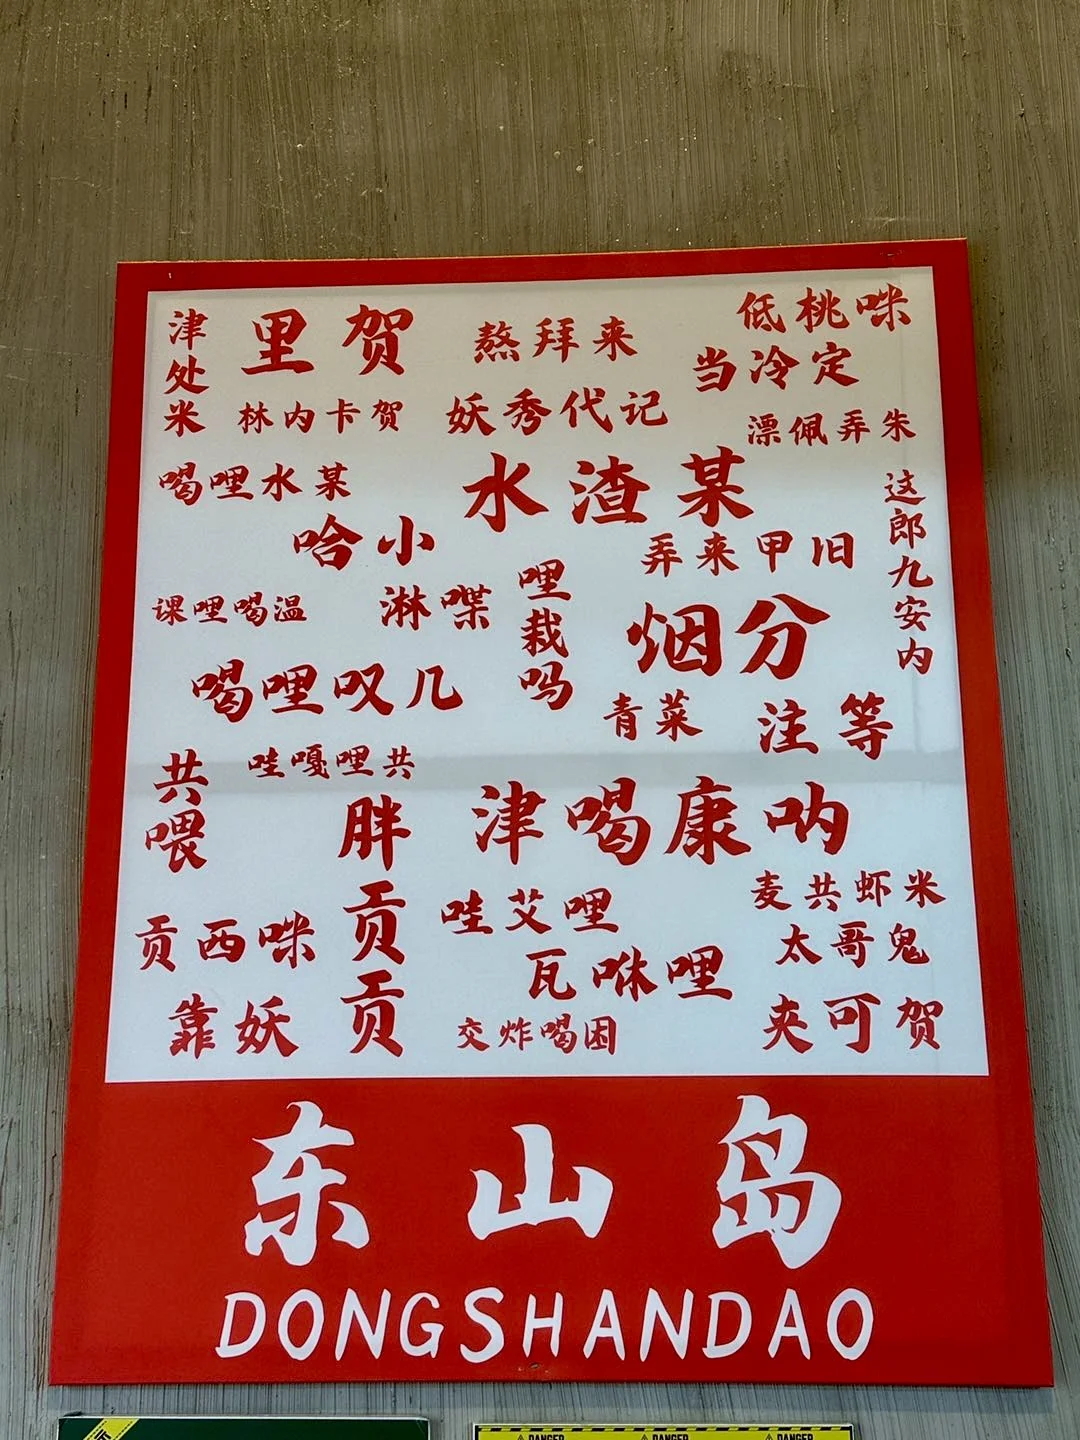 津处米
里贺
熬拜来
低桃咪
当冷定
林内卡贺
妖秀代记
漂佩弄朱
喝哩水某
水渣某
这郎九安内
哈小
弄来甲旧
课哩喝温
淋喋
哩栽吗
烟分
喝哩叹几
青菜
注等
共喂
哇嘎哩共
胖贡贡
津喝康呐
麦共虾米
贡西咪
哇艾哩
太哥鬼
瓦咻哩
靠妖
交炸喝困
夹可贺
东山岛
DONGSHANDAO
DANGER
DANGER
DANGER